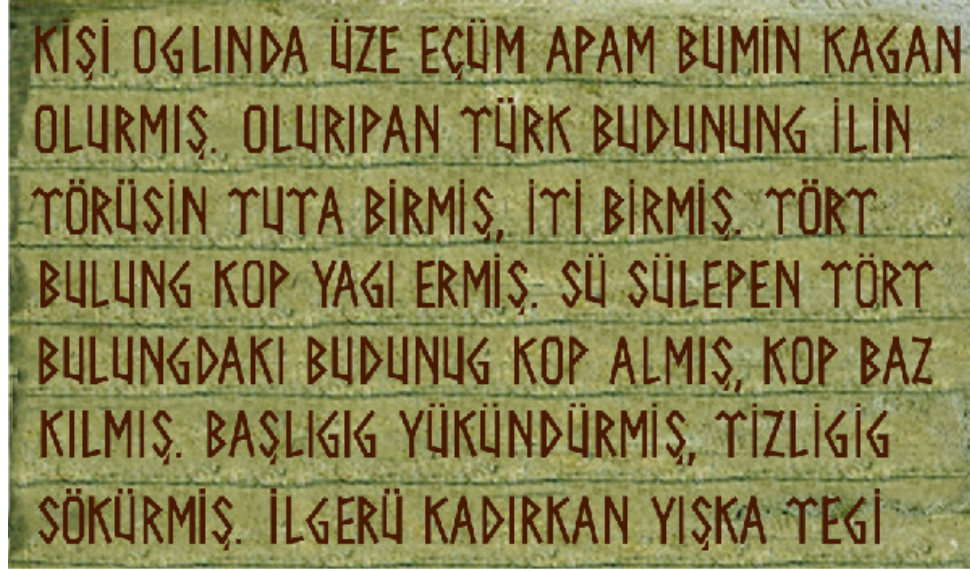 KİŞİ OGLINDA ÜZE EÇÜM APAM BUMİN KAGAN
OLURMIŞ. OLURIPAN TÜRK BUDUNUNG İLİN
TÖRÜSİN TUTA BİRMİŞ, İTİ BİRMİŞ. TÖRT
BULUNG KOP YAGI ERMİŞ. SÜ SÜLEPEN TÖRT
BULUNGDAKI BUDUNUG KOP ALMIŞ, KOP BAZ
KILMIŞ. BAŞLIGIG YÜKÜNDÜRMİŞ, TİZLİGİG
SÖKÜRMİŞ. İLGERÜ KADIRKAN YIŞKA TEGİ